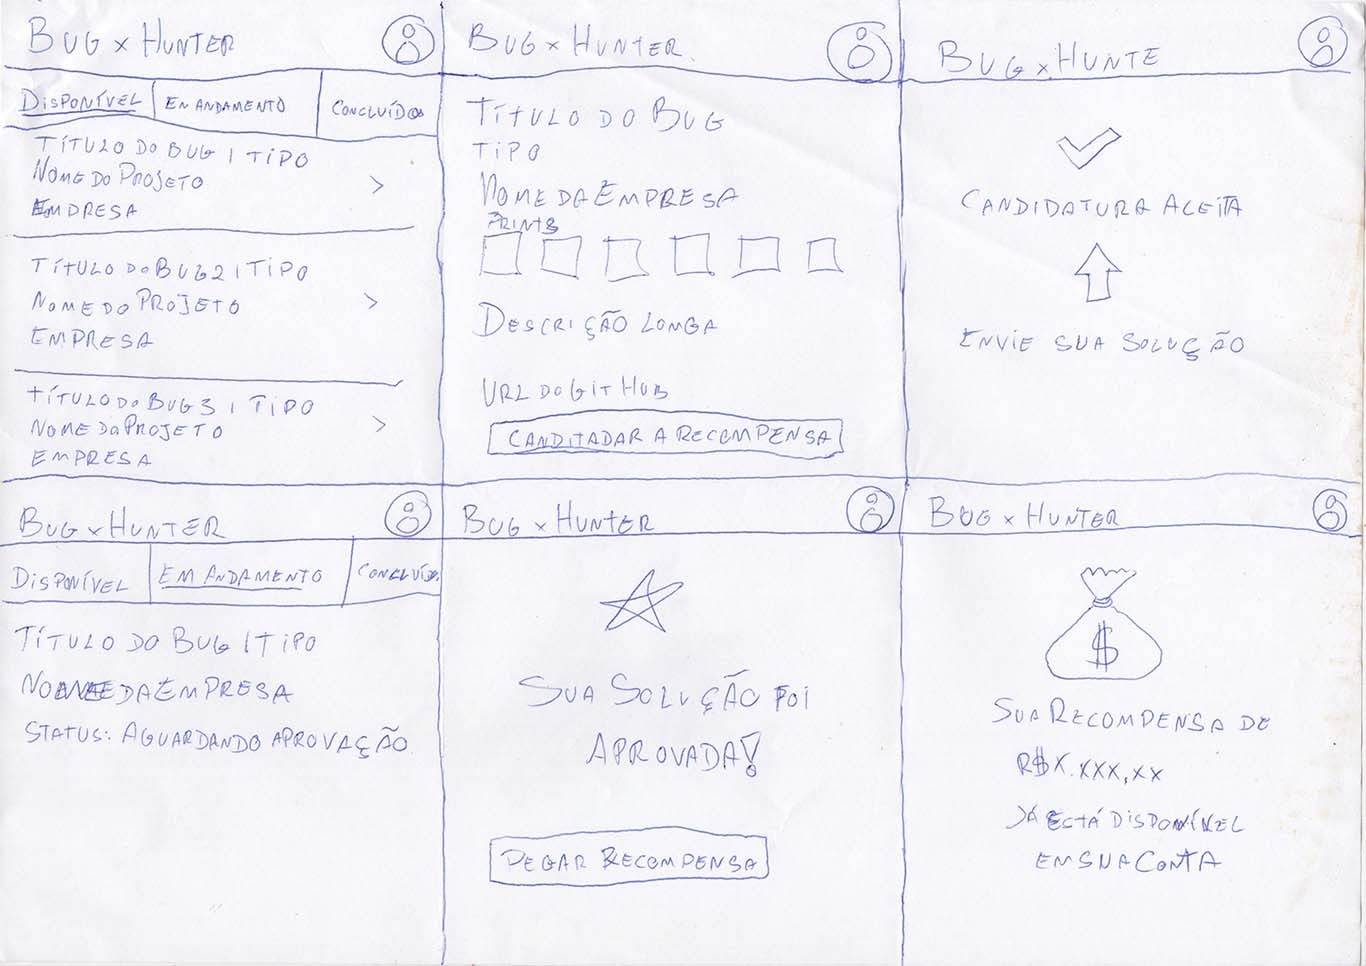 BUG x HUNTER
DISPONÍVEL
EN ANDAMENTO
CONCLUÍDOS
TÍTULO DO BUG 1 TIPO
NOME DO PROJETO
>
EMPRESA
TÍTULO DO BUG 2 | TIPO
NOME DO PROJETO
>
EMPRESA
TÍTULO DO BUG 3 | TIPO
NOME DO PROJETO
>
EMPRESA
BUG x HUNTER
TÍTULO DO BUG
TIPO
NOME DA EMPRESA
PRINTS
DESCRIÇÃO LONGA
URL DO GIT HUB
CANDITADAR A RECOMPENSA
BUG x HUNTE
CANDIDATURA ACEITA
ENVIE SUA SOLUÇÃO
BUG x HUNTER
DISPONÍVEL
EM ANDAMENTO
CONCLUÍD
TÍTULO DO BUG | TIPO
NOME DA EMPRESA
STATUS: AGUARDANDO APROVAÇÃO
BUG x HUNTER
SUA SOLUÇÃO FOI
APROVADA!
PEGAR RECOMPENSA
BUG x HUNTER
$
SUA RECOMPENSA DE
R$X.XXX,XX
JÁ ESTÁ DISPONÍVEL
EM SUA CONTA